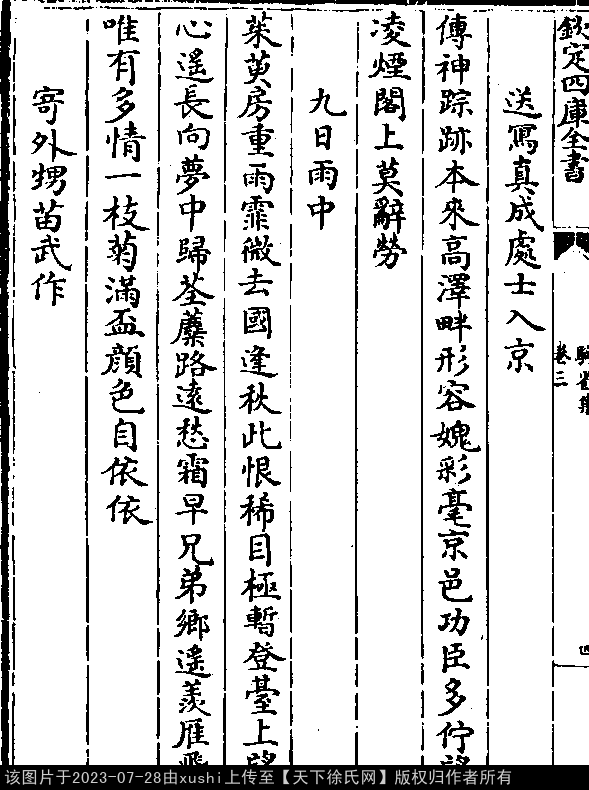 欽定四庫全書
卷三
四
送寫真成處士入京
傳神踪跡本來高澤畔形容媿彩毫京邑功臣多佇
凌煙閣上莫辭勞
九日雨中
茱萸房重雨霏微去國逢秋此恨稀目極暫登臺上
心遥長向夢中歸荃蘪路遠愁霜早兄弟鄉遥羨雁
唯有多情一枝菊滿盃顔色自依依
寄外甥苗武作
该图片于2023-07-28由xushi上传至【天下徐氏网】版权归作者所有